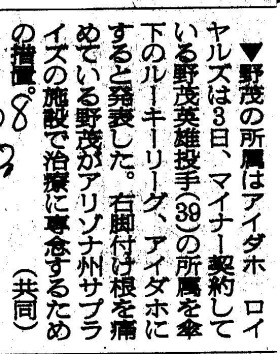 ▼野茂の所属はアイダホ　ロイ
ヤルズは3日、マイナー契約して
いる野茂英雄投手(39)の所属を傘
下のルーキーリーグ、アイダホに
すると発表した。右脚付け根を痛
めている野茂がアリゾナ州サプラ
イズの施設で治療に専念するため
の措置。　　　（共同）
08